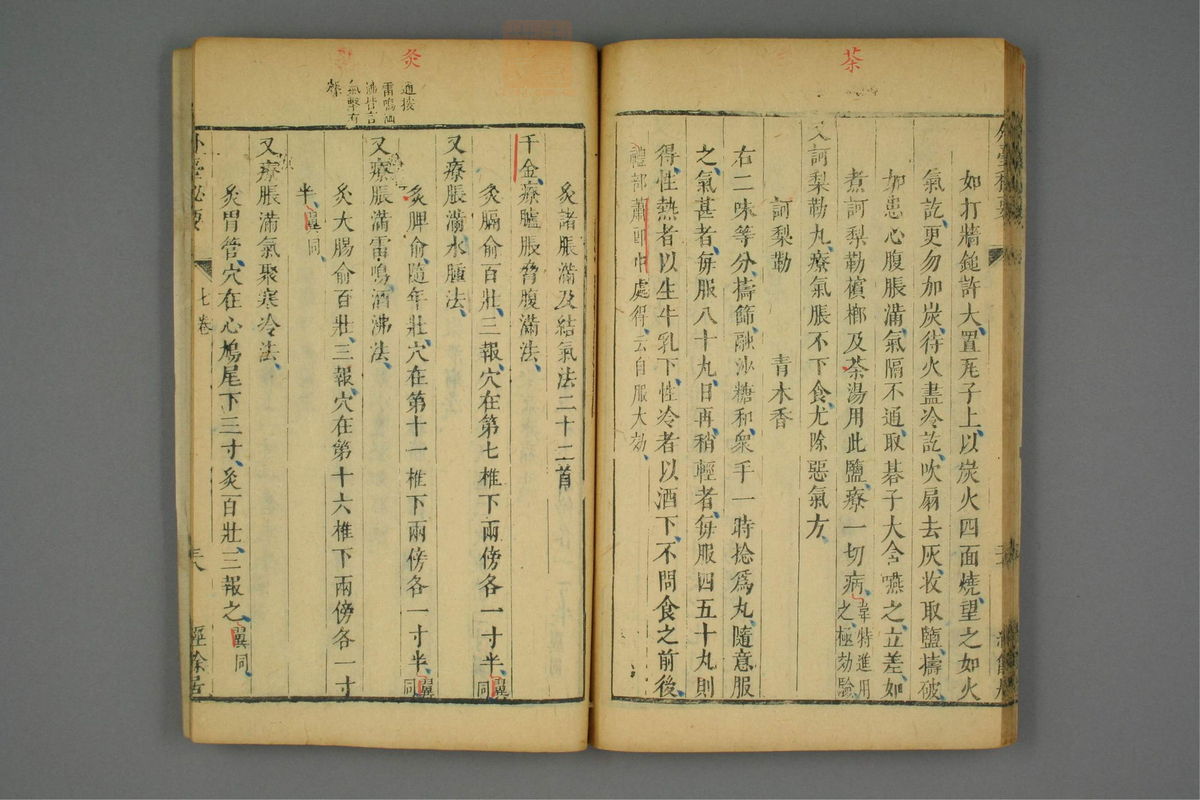 茶
如打牆鎚許大置瓦子上以炭火四面燒望之如火
氣訖更勿加炭待火盡冷訖吹扇去灰收取鹽擣破
如患心腹脹滿氣膈不通取碁子大含嚥之立差如
煮訶梨勒檳榔及茶湯用此鹽療一切病韋特進用
之極効驗
又訶梨勒丸療氣脹不下食尤除惡氣方
訶梨勒 青木香
右二味等分擣篩融沙糖和衆手一時捻爲丸隨意服
之氣甚者每服八十丸日再稍輕者每服四五十丸則
得性熱者以生牛乳下性冷者以酒下不問食之前後
禮部蕭郎中處得云自服大効
灸
灸諸脹滿及結氣法二十二首
千金療臚脹脅腹滿法
灸膈俞百壯三報穴在第七椎下兩傍各一寸半翼
同
又療脹滿水腫法
灸脾俞隨年壯穴在第十一椎下兩傍各一寸半翼
同
又療脹滿雷鳴酒沸法
灸大腸俞百壯三報穴在第十六椎下兩傍各一寸
半翼同
又療脹滿氣聚寒冷法
灸胃管穴在心鳩尾下三寸灸百壯三報之翼同
外臺祕要
七卷
經餘居